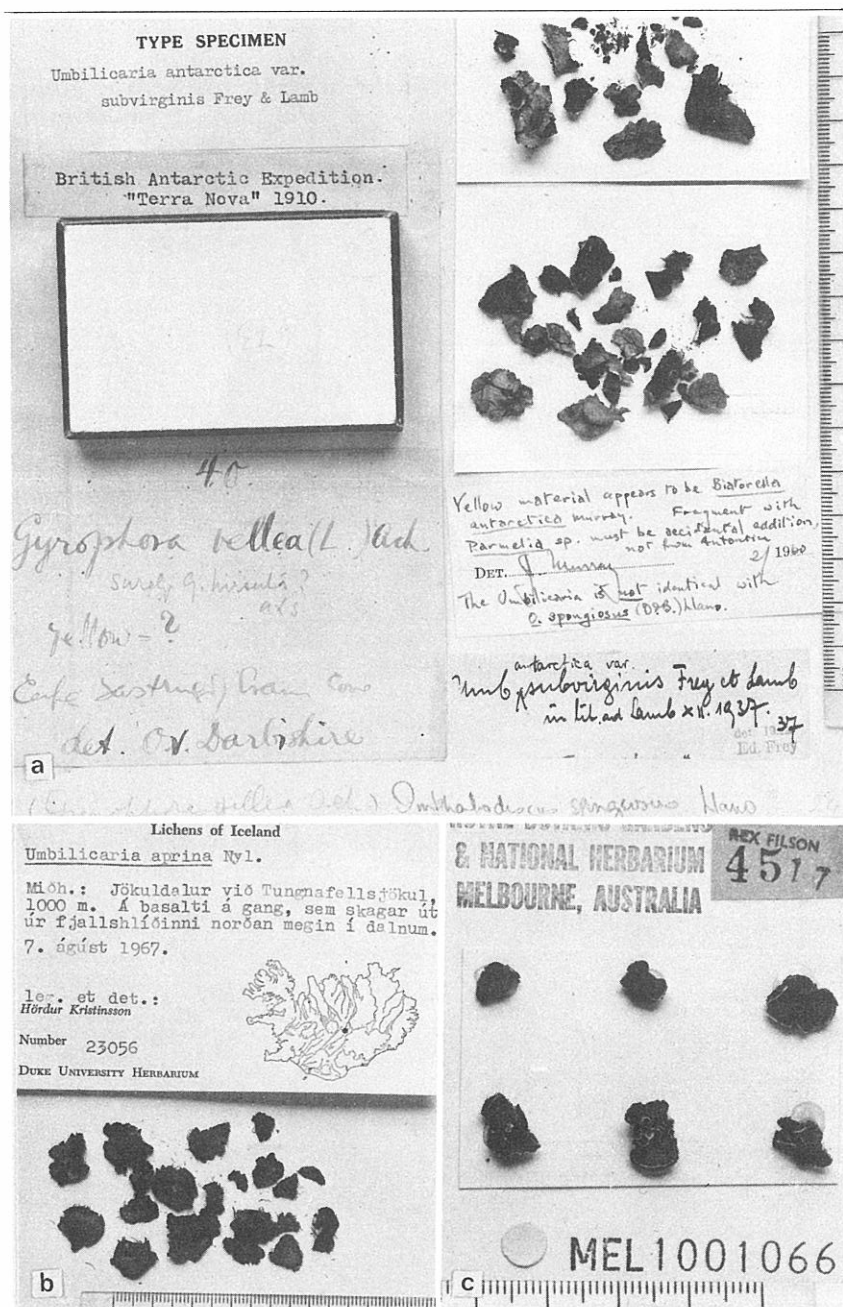 TYPE SPECIMEN
Umbilicaria antarctica var.
subvirginis Frey & Lamb
British Antarctic Expedition.
"Terra Nova" 1910.
40.
Gyrophora vellea (L.) Ach.
yellow - ?
det. O.V. Darbishire
a
Yellow material appears to be Biatorella
antarctica Murray. Fragment with
Parmelia sp. must be accidental addition,
not from Antarctica
DET. J Murray 2/1960
The Umbilicaria is not identical with
O. spongiosus (D&S.) Llano.
antarctica var.
Umb subvirginis Frey et Lamb
in lit. ad Lamb XII. 1937.
37
Ed. Frey
Omphalodiscus spongiosus Llano
Lichens of Iceland
Umbilicaria aprina Nyl.
Miðh.: Jökuldalur við Tungnafellsjökul,
1000 m. Á basalti á gang, sem skagar út
úr fjallshlíðinni norðan megin í dalnum.
7. ágúst 1967.
leg. et det.:
Hördur Kristinsson
Number 23056
DUKE UNIVERSITY HERBARIUM
b
GARDENS
& NATIONAL HERBARIUM
MELBOURNE, AUSTRALIA
REX FILSON
4517
MEL1001066
c